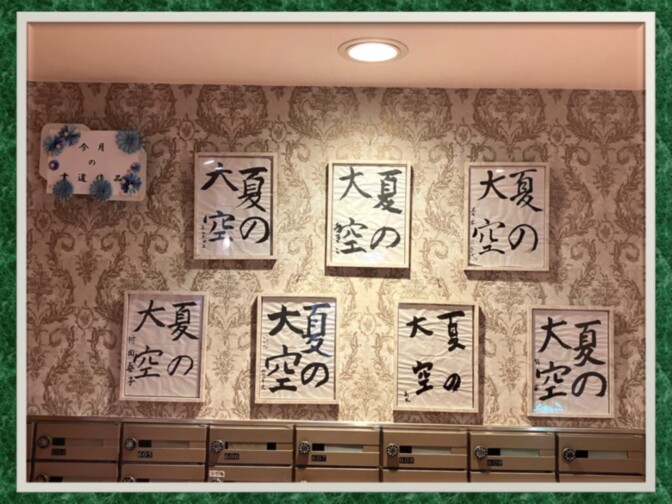 今月
の
書道作品
夏の
大空
夏の
大空
夏の
大空
夏の
大空
村岡春子
夏の
大空
夏の
大空
夏の
大空
605
607
608